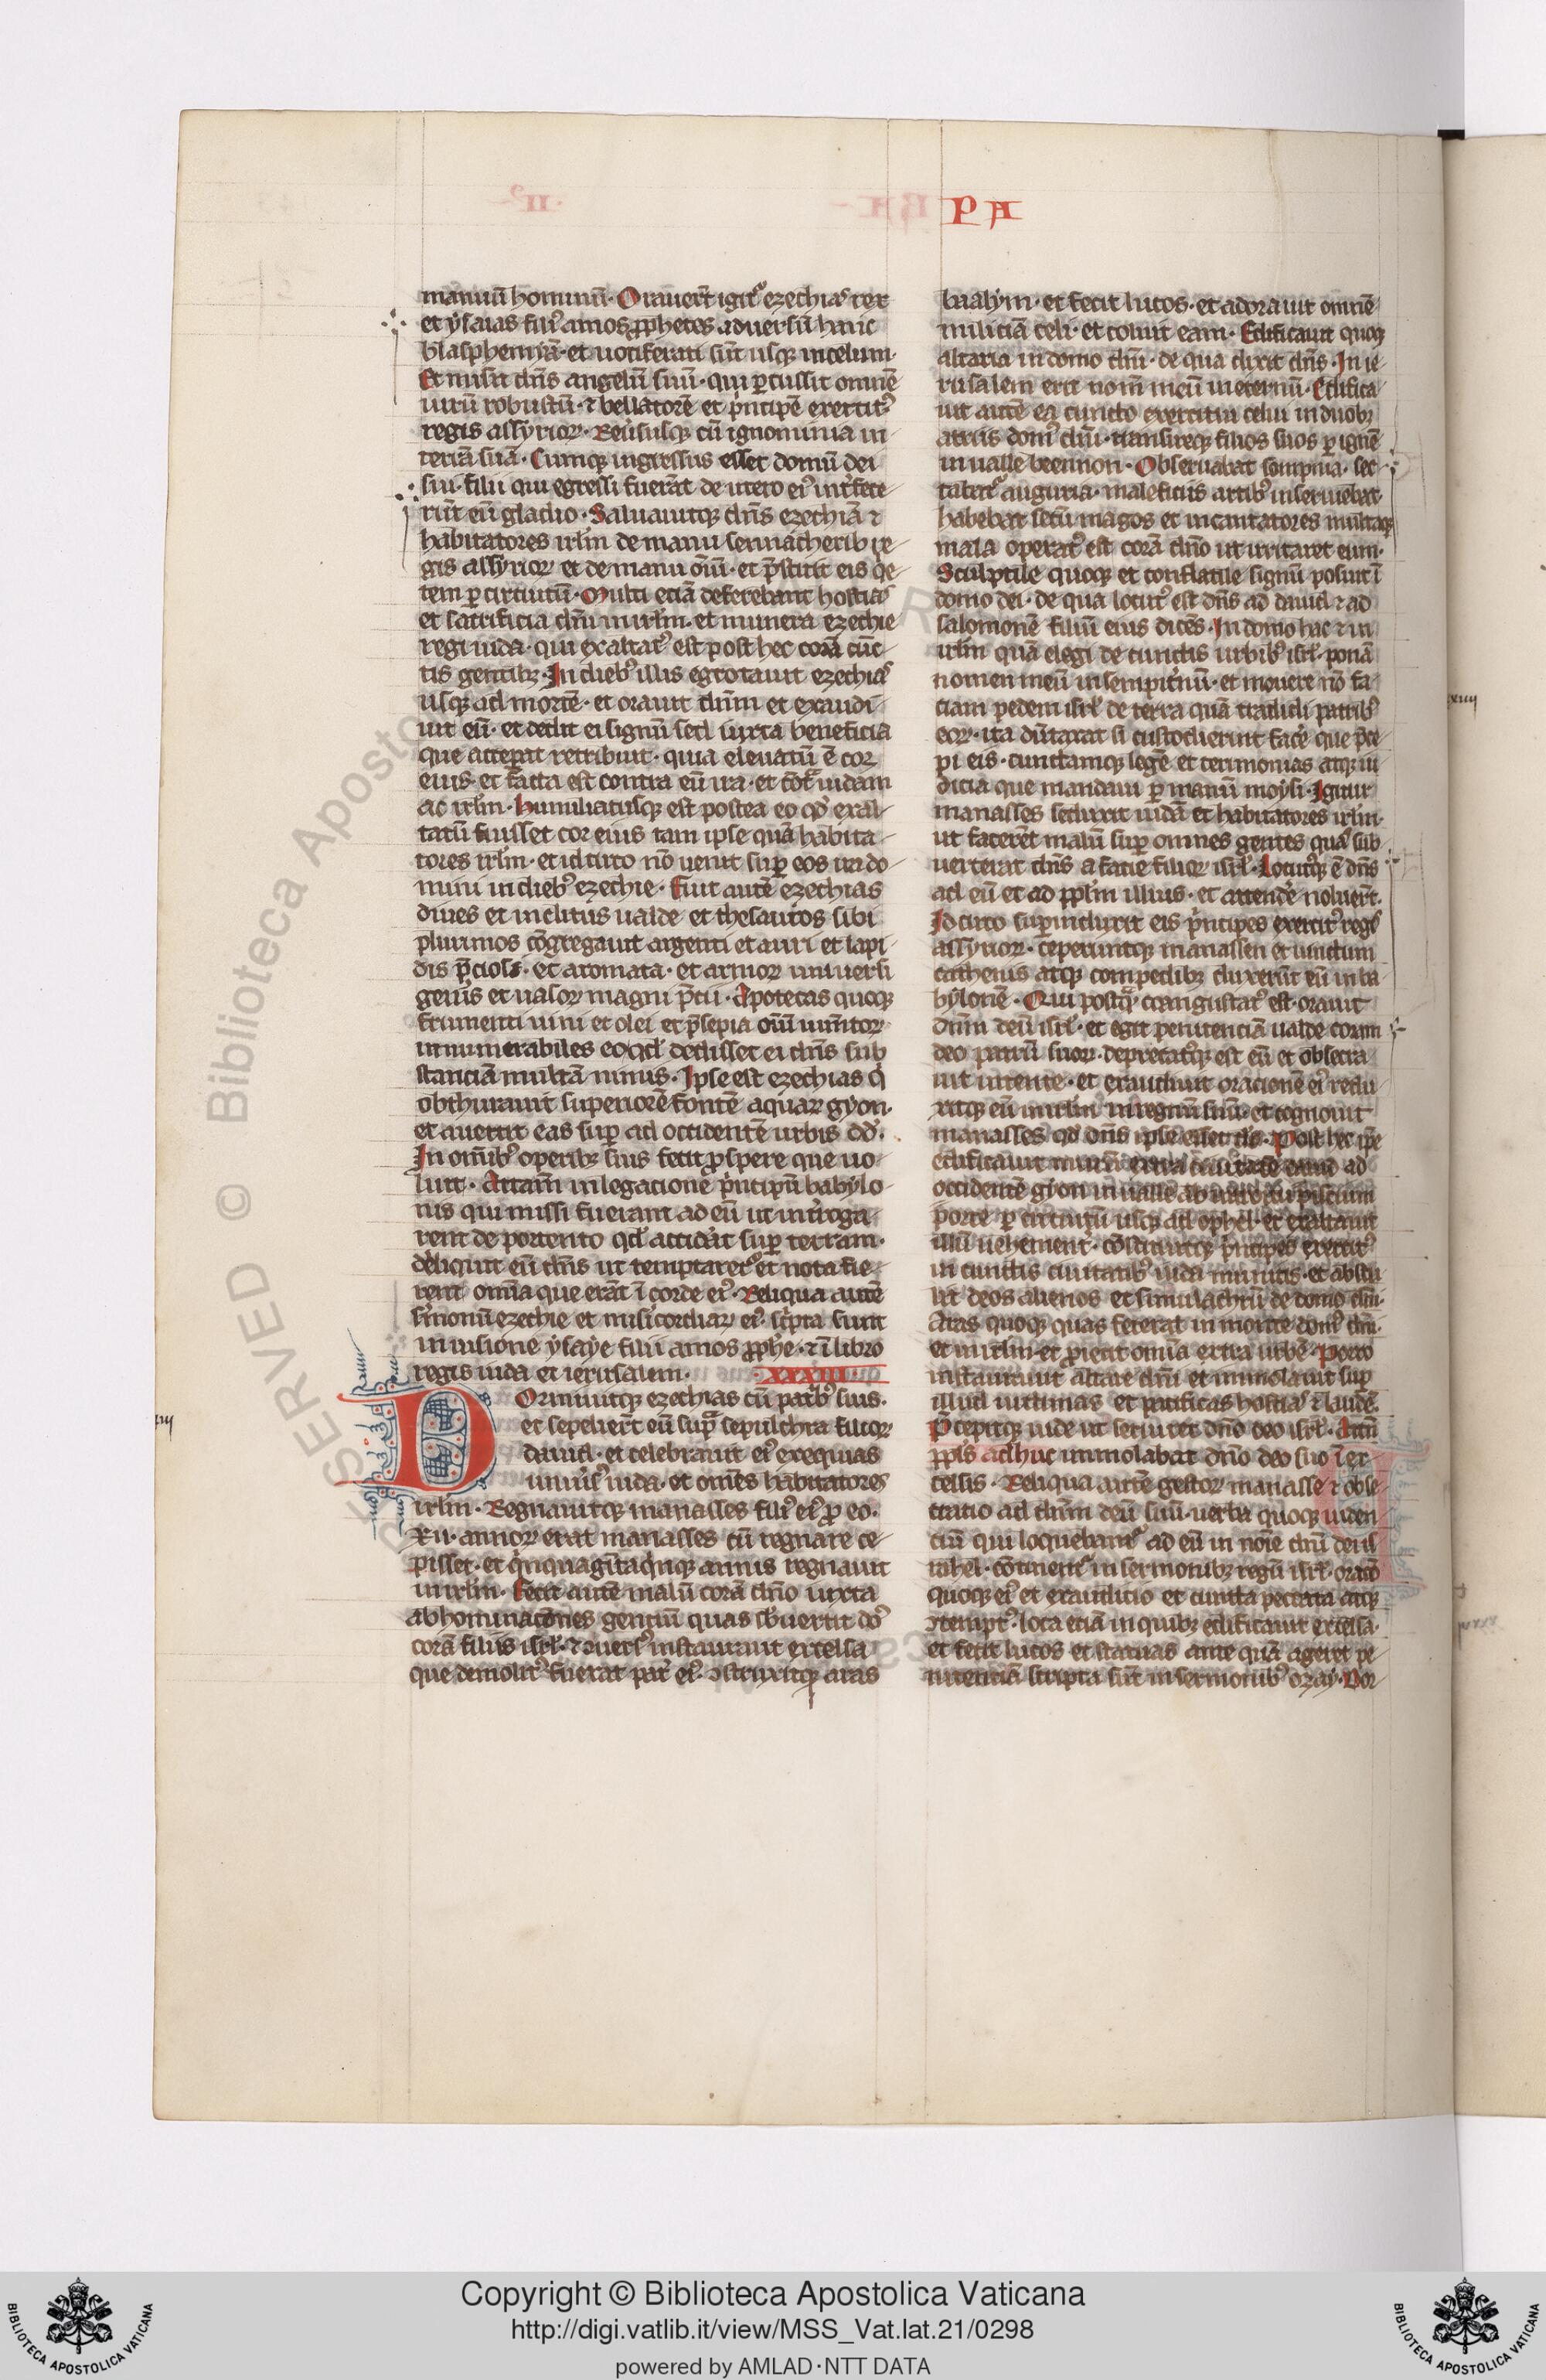 PA
manuū hominū. Orauer̄t igit᷑ ezechias rex
et ysaias fili᷒ amos ꝓphetes aduersū hanc
blasphemiā. et uociferati sūt usqꝫ in celum.
Et misit dn̄s angelū suū. qui ꝑcussit omnē
uirū robustū. ⁊ bellatorē et pͥncipē exercit᷒
regis assyrioꝝ. Reuersusqꝫ cū ignominia in
terrā suā. Cumqꝫ ingressus esset domū dei
sui. filii qui egressi fuerāt de utero ei᷒ int̄fece
rūt eū gladio. Saluauitqꝫ dn̄s ezechiā ⁊
habitatores irl̄m de manu sennacherib re
gis assyrioꝝ et de manu oīū. et p̄stitit eis qͥe
tem ꝑ circuitū. Multi eciā deferebant hostias
et sacrificia dn̄o in irl̄m. et munera ezechie
regi iuda. qui exaltat᷒ est post hec corā cūc
tis gentibꝫ. In dieb᷒ illis egrotauit ezechias
usqꝫ ad mortē. et orauit dn̄m et exaudi
uit eū. et dedit ei signū sed iuxta beneficia
que acceperat retribuit. quia eleuatū ē cor
eius. et facta est contra eū ira. et cōtͣ iudam
ac irl̄m. Humiliatusqꝫ est postea eo qd̄ exal
tatū fuisset cor eius tam ipse quā habita
tores irl̄m. et idcirco nō uenit suꝑ eos ira do
mini in dieb᷒ ezechie. Fuit autē ezechias
diues et inclitus ualde et thesauros sibi
plurimos cōgregauit argenti et auri et lapi
dis p̄ciosi. et aromata. et armoꝝ uniuersi
gen̄is et uasoꝝ magni p̄cii. Apotecas quoqꝫ
frumenti uini et olei et p̄sepia oīū iumētoꝝ
innumerabiles eoqd̄ dedisset ei dn̄s sub
stanciā multā nimis. Ipse est ezechias qͥ
obthurauit superiorē fontē aquaꝝ gyon.
et auertit eas suꝑ ad occidentē urbis dd̄.
In omīb᷒ operibꝫ suis fecit ꝓspere que uo
luit. Attam̄ in legacione pͥncipū babylo
nis qui missi fuerant ad eū ut int̄roga
rent de portento qd̄ acciderat suꝑ terram.
deliquit eū dn̄s ut temptaret᷑ et nota fie
rent om̄ia que erāt ī corde ei᷒. Reliqua autē
s̄monū ezechie et misericordiaꝝ ei᷒. scͥpta sunt
in uisione ysaye filii amos ꝓphe. ⁊ ī libro
regis iuda et ierusalem. XXXIII.
Dormiuitqꝫ ezechias cū patͥb᷒ suis.
et sepelier̄t eū supͣ sepulchra filioꝝ
dauid. et celebrauit ei᷒ exequias
uniūs᷒ iuda. et omēs habitatores
irl̄m. Regnauitqꝫ manasses fili᷒ ei᷒ ꝓ eo.
Xii. annoꝝ erat manasses cū regnare ce
pisset. et qͥnquagintaqͥnqꝫ annis regnauit
in irl̄m. Fecit autē malū corā dn̄o iuxta
abhominacōnes genciū quas sb̄uertit dn̄s
corā filiis isrl̄. ⁊ ꝯuers᷒ instaurauit excelsa
que demolit᷒ fuerat pat̄ ei᷒. ꝯstruxitqꝫ aras
baalym. et fecit lucos. et adorauit omnē
miliciā celi. et coluit eam. Edificauit quoqꝫ
altaria in domo dn̄i. de qua dixit dn̄s. In ie
rusalem erit nom̄ meū in eternū. Edifica
uit autē ea cuncto exercitui celi in duobꝫ
atriis dom᷒ dn̄i. transireqꝫ filios suos ꝑ ignē
in ualle beennon. Obseruabat sompnia. sec
tabat᷑ auguria. maleficiis artib᷒ inseruiebat
habebat secū magos et incantatores multaqꝫ
mala operat᷒ est corā dn̄o ut irritaret eum.
Sculptile quoqꝫ et conflatile signū posuit ī
domo dei. de qua locut᷒ est dn̄s ad dauid ⁊ ad
salomonē filiū eius dicēs. In domo hac ⁊ in
irl̄m quā elegi de cunctis urbib᷒ isrl̄. ponā
nomen meū in sempitn̄ū. et mouere nō fa
ciam pedem isrl̄ de terra quā tradidi patrib᷒
eoꝝ. ita dūtaxat si custodierint facͤe que p̄ce
pi eis. cunctamqꝫ legē et cerimonias atqꝫ iu
dicia que mandaui ꝑ manū moysi. Igitur
manasses seduxit iudā et habitatores irl̄m.
ut facerēt malū suꝑ omnes gentes quas sub
uerterat dn̄s a facie filioꝝ isrl̄. Locut᷒qꝫ ē dn̄s
ad eū et ad ppl̄m illius. et attendͤe noluer̄t.
Idcirco suꝑinduxit eis pͥncipes exercit᷒ regis
assyrioꝝ. ceperuntqꝫ manassen et uinctum
cathenis atqꝫ compedibꝫ duxerūt eū in ba
bylonē. Qui postqͣ coangustat᷒ est. orauit
dn̄m deū isrl̄. et egit penitenciā ualde coram
deo patrū suoꝝ. deprecat᷒qꝫ est eū et obsecra
uit intente. et exaudiuit oracionē ei᷒ redu
xitqꝫ eū in irl̄m in regnū suū. et cognouit
manasses qd̄ dn̄s ipse esset ds̄. Post hec
edificauit murū extra ciuitatē dauid ad
occidentē gyon in ualle ab introitu pisciū
porte ꝑ circuitū usqꝫ ad ophel. et exaltauit
illū uehement᷑. cōstituitqꝫ pͥncipes exercit᷒
in cunctis ciuitatib᷒ iuda munitis. et abstu
lit deos alienos et simulachrū de domo dn̄i.
Aras quoqꝫ quas fecerat in monte dom᷒ dn̄i.
et in irl̄m. et ꝓiecit omīa extra urbē. Porro
instaurauit altare dn̄i et immolauit suꝑ
illud uictimas et pacificas hostias ⁊ laudē.
P̄cepitqꝫ iude ut seruiret dn̄o deo isrl̄. Attn̄
ppl̄s adhuc immolabat dn̄o deo suo ī ex
celsis. Reliqua autē gestoꝝ manasse ⁊ obse
cratio ad dn̄m deū suū. uerba quoqꝫ uiden
ciū qui loquebant᷑ ad eū in noīe dn̄i dei is
rahel. cōtinent᷑ in sermonibꝫ regū isrl̄. oracio
quoqꝫ ei᷒ et exauditio et cuncta peccata atqꝫ
ꝯtempt᷒. loca eciā in quibꝫ edificauit excelsa.
et fecit lucos et statuas ante quā ageret pe
nitenciā scripta sūt in sermonib᷒ ozay. Dor
Copyright © Biblioteca Apostolica Vaticana
http://digi.vatlib.it/view/MSS_Vat.lat.21/0298
powered by AMLAD·NTT DATA
BIBLIOTECA APOSTOLICA VATICANA
BIBLIOTECA APOSTOLICA VATICANA